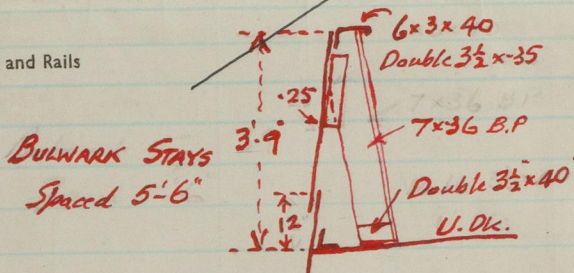 and Rails
6 x 3 x 40
Double 3½ x .35
.25
3'-9"
7 x 36 B.P
BULWARK STAYS
Spaced 5'-6"
Double 3½" x 40
12
U.Dk.